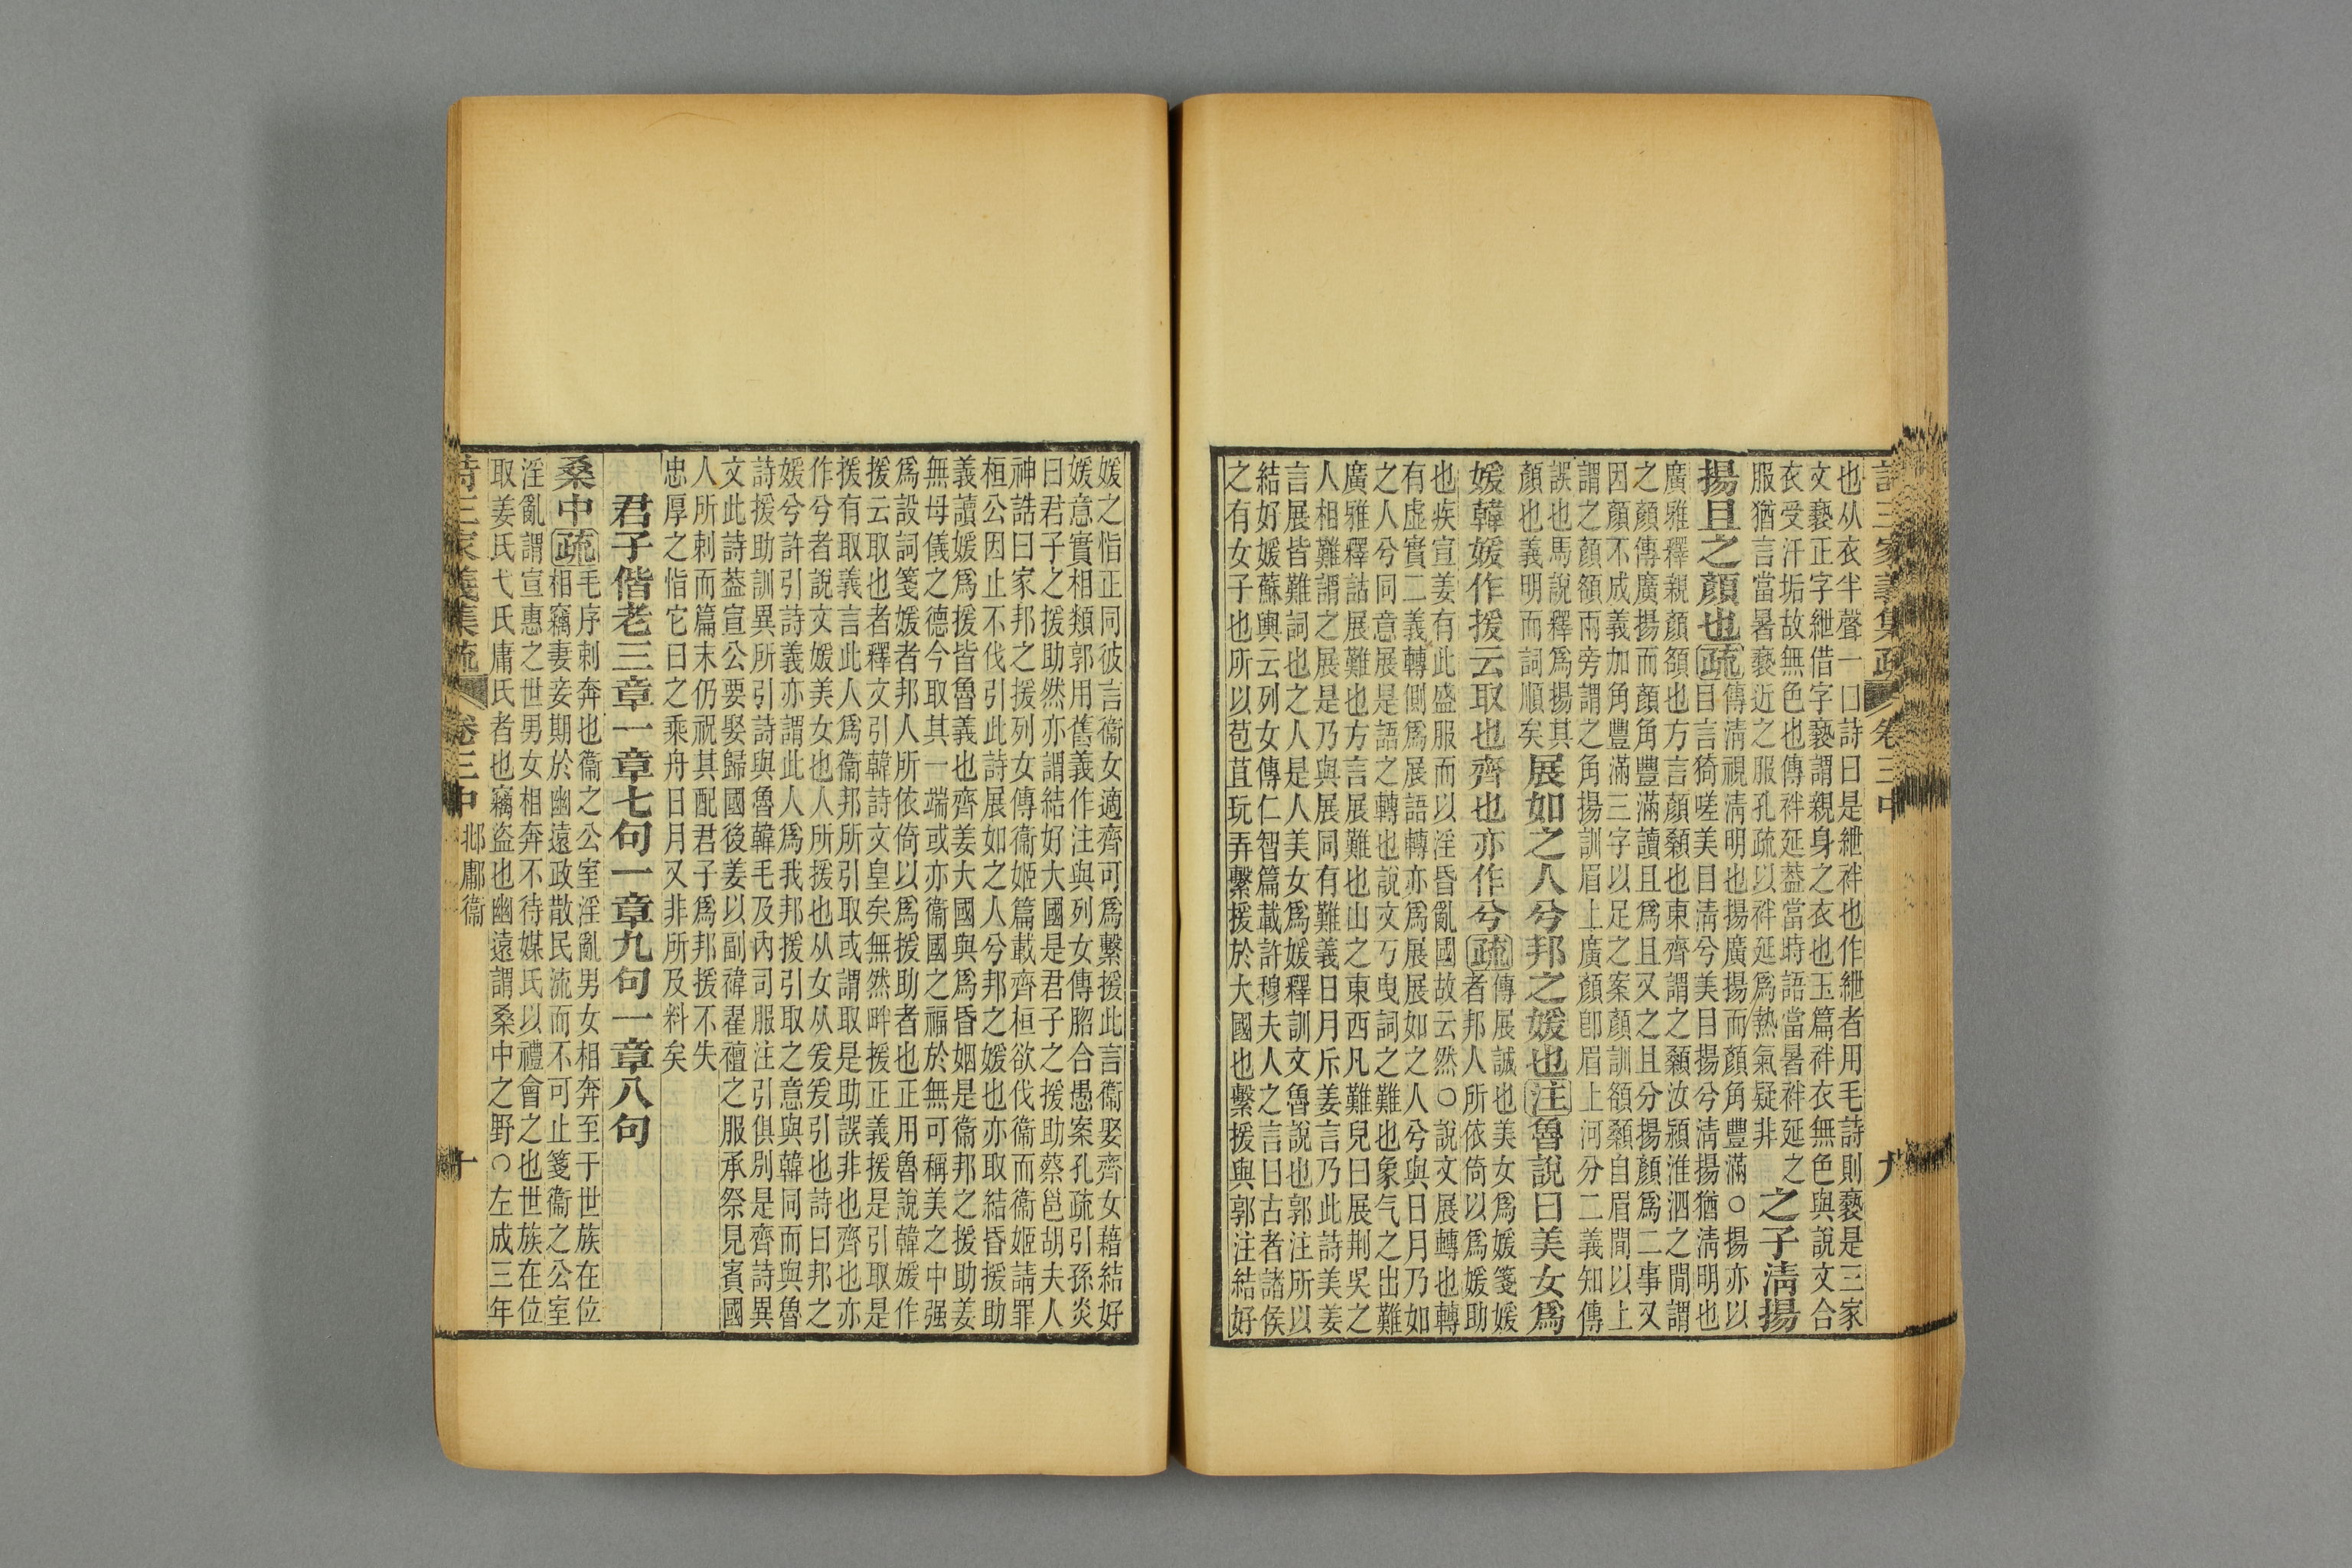 詩三家義集疏 卷三中 九
也从衣半聲一曰詩曰是紲袢也作紲者用毛詩則褻是三家
文褻正字紲借字褻謂親身之衣也玉篇袢衣無色與說文合
衣受汗垢故無色也傳袢延葢當時語當暑袢延之
服猶言當暑褻近之服孔疏以袢延爲熱氣疑非
之子淸揚
揚且之顏也疏
傳淸視淸明也揚廣揚而顏角豐滿○揚亦以
目言猗嗟美目淸兮美目揚兮淸揚猶淸明也
廣雅釋親顏頟也方言顏顙也東齊謂之顙汝潁淮泗之閒謂
之顏傳廣揚而顏角豐滿讀且爲且又之且分揚顏爲二事又
因顏不成義加角豐滿三字以足之案顏訓頟顙自眉閒以上
謂之顏頟兩旁謂之角揚訓眉上廣顏卽眉上河分二義知傳
誤也馬說釋爲揚其
顏也義明而詞順矣
展如之人兮邦之媛也注魯說曰美女爲
媛韓媛作援云取也齊也亦作兮疏
傳展誠也美女爲媛箋媛
者邦人所依倚以爲媛助
也疾宣姜有此盛服而以淫昏亂國故云然○說文展轉也轉
有虛實二義轉側爲展語轉亦爲展展如之人兮與日月乃如
之人兮同意展是語之轉也說文丂曳詞之難也象气之出難
廣雅釋詁展難也方言展難也山之東西凡難皃曰展荆吳之
人相難謂之展是乃與展同有難義日月斥姜言乃此詩美姜
言展皆難詞也之人是人美女爲媛釋訓文魯說也郭注所以
結好媛蘇輿云列女傳仁智篇載許穆夫人之言曰古者諸侯
之有女子也所以苞苴玩弄繫援於大國也繫援與郭注結好
媛之恉正同彼言衞女適齊可爲繫援此言衞娶齊女藉結好
媛意實相類郭用舊義作注與列女傳脗合愚案孔疏引孫炎
曰君子之援助然亦謂結好大國是君子之援助蔡邕胡夫人
神誥曰家邦之援列女傳衞姬篇載齊桓欲伐衞而衞姬請罪
桓公因止不伐引此詩展如之人兮邦之媛也亦取結昏援助
義讀媛爲援皆魯義也齊姜大國與爲昏姻是衞邦之援助姜
無母儀之德今取其一端或亦衞國之福於無可稱美之中强
爲設詞箋媛者邦人所依倚以爲援助者也正用魯說韓媛作
援云取也者釋文引韓詩文皇矣無然畔援正義援是引取是
援有取義言此人爲衞邦所引取或謂取是助誤非也齊也亦
作兮者說文媛美女也人所援也从女从爰爰引也詩曰邦之
媛兮許引詩義亦謂此人爲我邦援引取之意與韓同而與魯
詩援助訓異所引詩與魯韓毛及內司服注引俱別是齊詩異
文此詩葢宣公要娶歸國後姜以副褘翟襢之服承祭見賓國
人所刺而篇末仍祝其配君子爲邦援不失
忠厚之恉它日之乘舟日月又非所及料矣
君子偕老三章一章七句一章九句一章八句
桑中疏
毛序刺奔也衞之公室淫亂男女相奔至于世族在位
相竊妻妾期於幽遠政散民流而不可止箋衞之公室
淫亂謂宣惠之世男女相奔不待媒氏以禮會之也世族在位
取姜氏弋氏庸氏者也竊盜也幽遠謂桑中之野○左成三年
詩三家義集疏 卷三中 邶鄘衞 十